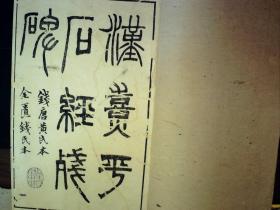 漢熹平
石經殘
碑
錢唐黃氏本
金匱錢氏本